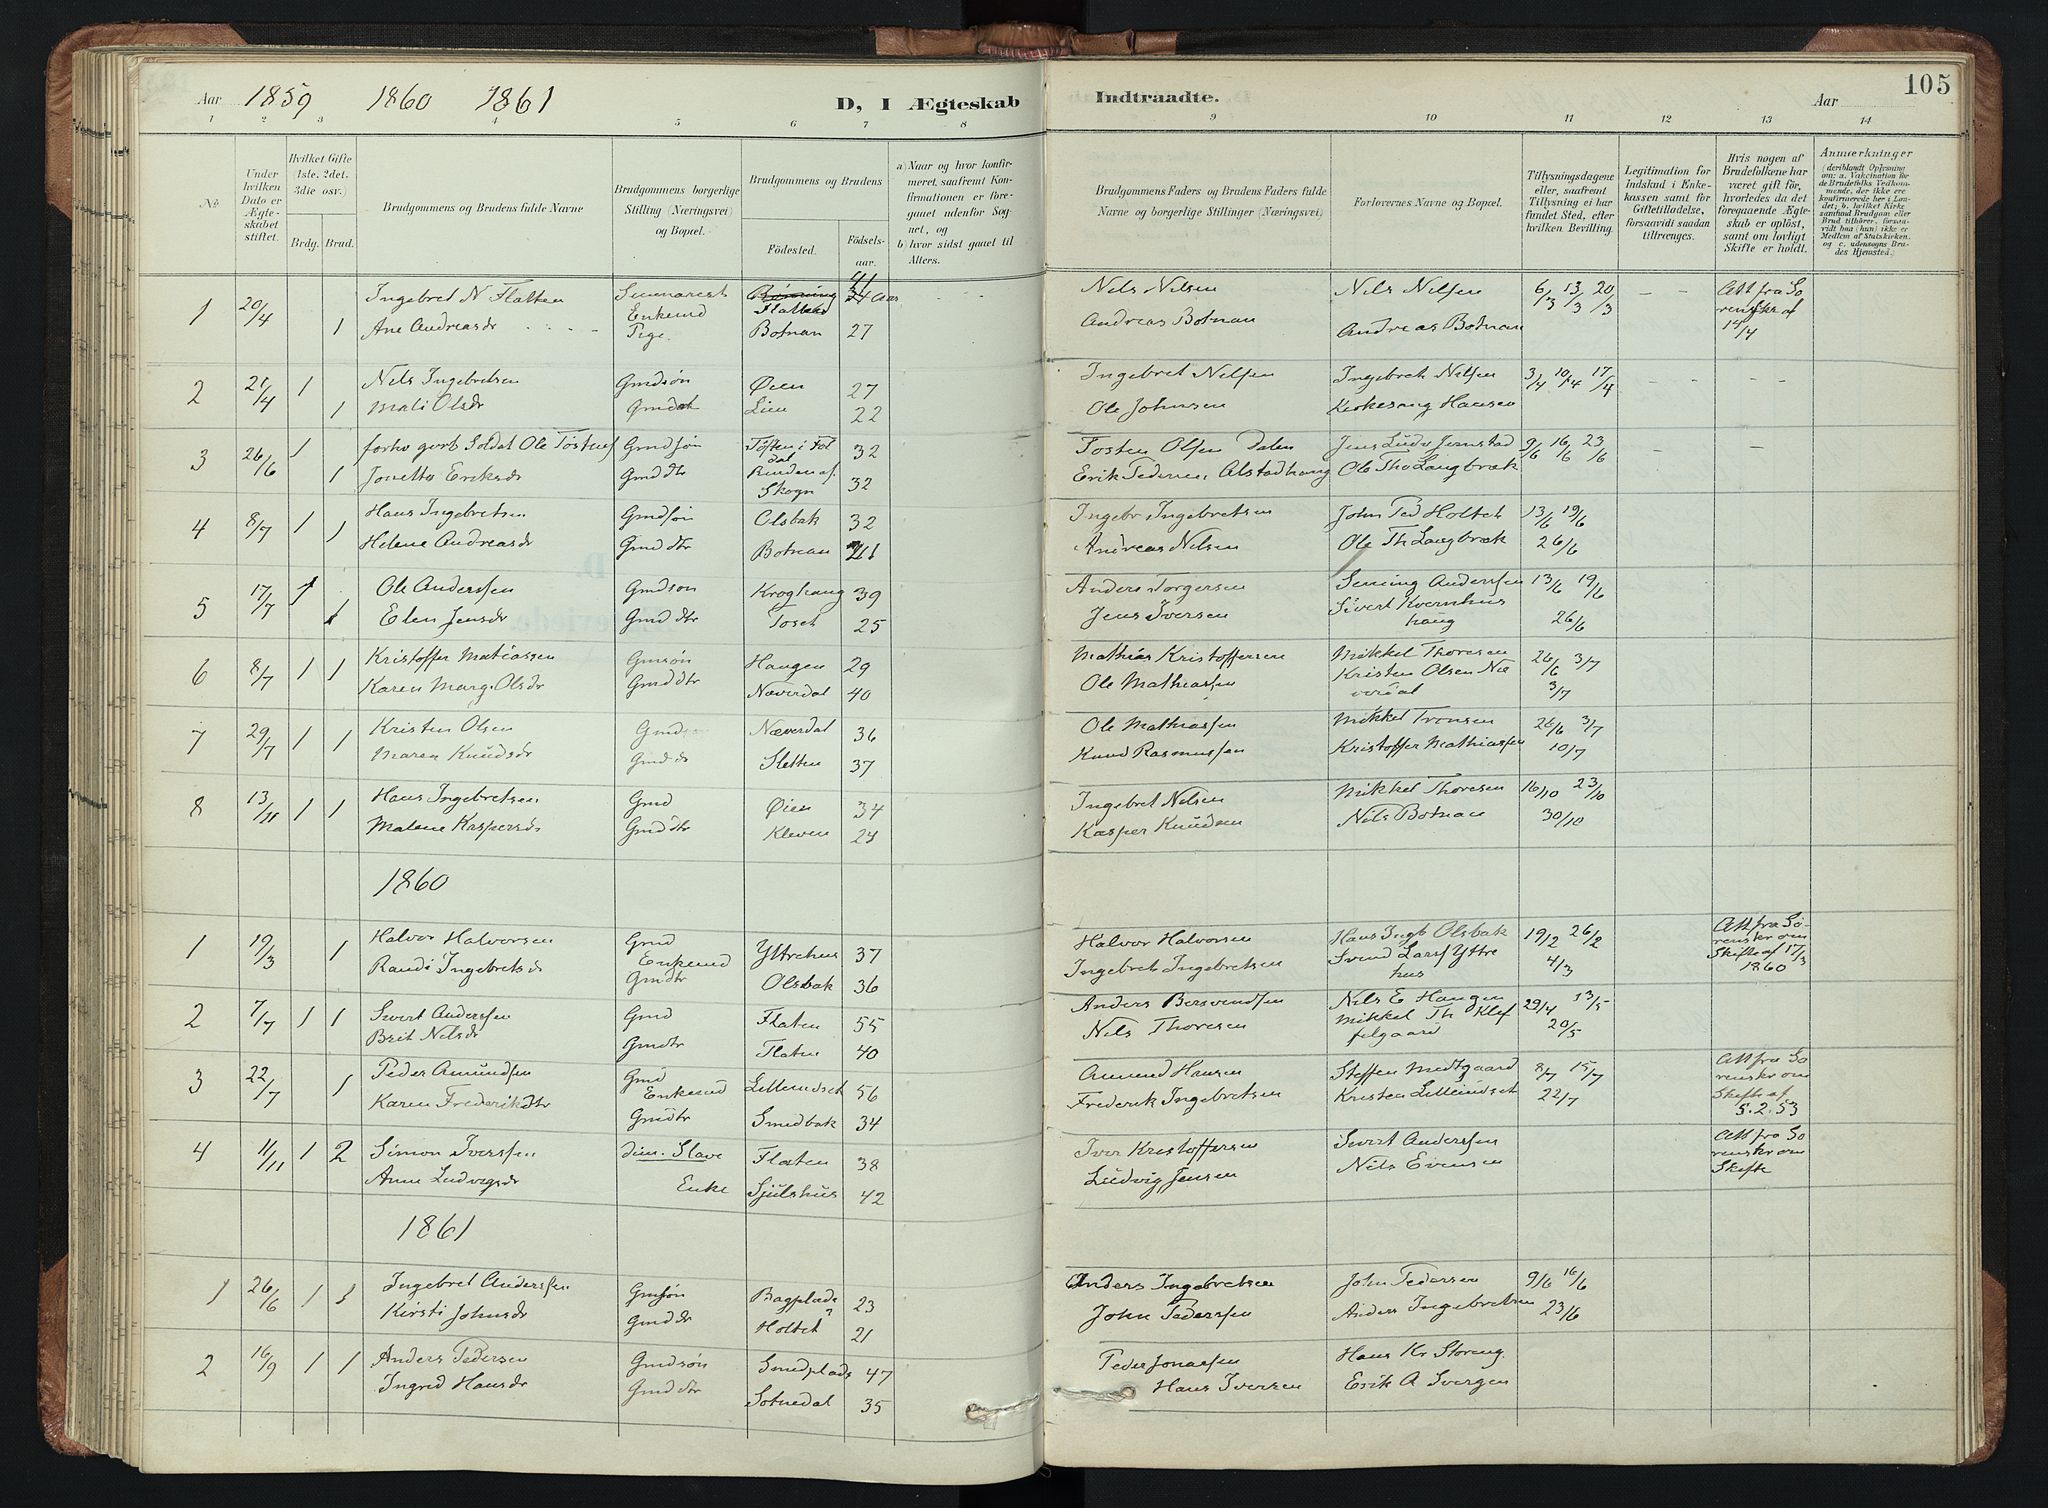 Aar 1859 1860 1861 D, I Ægteskab
Indtraadte. Aar 105
1 2 3 4 5 6 7 8
9 10 11 12 13 14
No
Under hvilken Dato er Ægteskabet stiftet.
Hvilket Gifte (1ste, 2det, 3die osv.)
Brdg. Brud.
Brudgommens og Brudens fulde Navne
Brudgommens borgerlige Stilling (Næringsvei) og Bopæl.
Brudgommens og Brudens
Fødested. Fødselsaar.
a) Naar og hvor konfirmeret, saafremt Konfirmationen er foregaaet udenfor Sognet, og
b) hvor sidst gaaet til Alters.
Brudgommens Faders og Brudens Faders fulde Navne og borgerlige Stillinger (Næringsvei)
Forlovernes Navne og Bopæl.
Tillysningsdagene eller, saafremt Tillysning ei har fundet Sted, efter hvilken Bevilling.
Legitimation for Indskud i Enkekassen samt for Giftetilladelse, forsaavidt saadan tiltrænges.
Hvis nogen af Brudefolkene har været gift før, hvorledes da det foregaaende Ægteskab er opløst, samt om lovligt Skifte er holdt.
Anmærkninger
(deriblandt Oplysning om: a. Vaccination for de Brudefolks Vedkommende, der ikke ere konfirmerede her i Landet; b. hvilket Kirkesamfund Brudgom eller Brud tilhører, forsaavidt han (hun) ikke er Medlem af Statskirken, og c. udensogns Brudes Hjemsted.)
1 20/4 Ingebret N Flatten Enkemd Flatten 41 Aar Nels Nelsen Nils Nilsen 6/3 13/3 20/3 - - Att fra Sorenskr af 19/4
1 Ane Andreasdr Pige. Botnan 27 Andreas Botnan Andreas Botnan
2 21/4 1 Nels Ingebretsen Gmdsøn Øien 27 Ingebret Nilsen Ingebret Nilsen 3/4 10/4 17/4
1 Mali Olsdr Gmddtr Lien 22 Ole Johnsen Hansen
3 26/6 1 Soldat Ole Tøstens Gmdsøn Tøften i Foldal 32 Tosten Olsen Dalen Jens Ludv Jemstad 9/6 16/6 23/6
1 Jonetta Eriksdr Gmddtr Rinden af Skogn 32 Erik Pedersen Alstadhaug Ole Tho Langbræk
4 8/7 1 1 Hans Ingebretsen Gmdsøn Olsbak 32 Ingebr Ingebretsen John Ped Holtet 13/6 19/6
Helene Andreasdr Gmddtr Botnan 21 Andreas Nilsen Ole Th Langbræk 26/6
5 17/7 1 Ole Anderssen Gmdson Kroghaug 39 Anders Torgersen Seming Anderssen 13/6 19/6
1 Elen Jensdr Gmddtr Toset 25 Jens Iversen Sivert Kvernhushaug 26/6
6 8/7 1 1 Kristoffer Matiassen Gmsøn Haugen 29 Mathias Kristoffersen Mikkel Thoresen 26/6 3/7
Karen Marg. Olsdr Gmddtr Næverdal 40 Ole Mathiassen Kristen Olsen Næverdal 3/7
7 29/7 1 1 Kristen Olsen Gmdsøn Næverdal 36 Ole Mathiassen Mikkel Tronsen 26/6 3/7
Maren Knudsdr Gmdd Sletten 37 Knud Rasmussen Kristoffer Mathiassen 10/7
8 13/11 1 1 Hans Ingebretsen Gmd Øien 34 Ingebret Nelsen Mikkel Thoresen 16/10 23/10
Malene Kaspersdr Gmddtr Kleven 24 Kasper Knudsen Nils Botnan 30/10
1860
1 19/3 1 Halvor Halvorsen Gmd Enkemd Yttrehus 37 Halvor Halvorsen Hans Ingb Olsbak 19/2 26/2 Att fra Sorenskr om Skifte af 17/3 1860
Randi Ingebretsdr Gmdtr Olsbak 36 Ingebret Ingebretsen Svend Larss Yttrehus 4/3
2 7/7 1 1 Sivert Anderssen Gmd Flaten 55 Anders Bersvendsen Nils E Haugen 29/4 13/5
Brit Nelsdr Gmdtr Flaten 40 Nils Thoresen Mikkel Th Kleffelgaard 20/5
3 22/7 1 Peder Amundsen Gmd Enkemd Lilleindset 56 Amund Hansen Steffen Midtgaard 8/7 15/7 Att fra Sorenskr om Skifte af 5.2.53
Karen Frederiksdtr Gmdtr Smedbak 34 Frederik Ingebretsen Kristen Lilleindset 22/7
4 11/11 1 2 Simon Iverssen dim. Slave Flaten 38 Iver Kristoffersen Sivert Anderssen Att fra Sorenskr om Skifte
Anne Ludvigsdr Enke Sjulshus 42 Ludvig Jensen Nils Evensen
1861
1 26/6 1 1 Ingebret Anderssen Gmsøn Bagplads 23 Anders Ingebretsen John Pedersen 9/6 16/6
Kirsti Johnsdr Gmddr Holtet 21 John Pederssen Anders Ingebretsen 23/6
2 16/9 1 1 Anders Pedersen Gmdsøn Smedplads 47 Peder Jonassen Hans Kr Støreng
Ingrid Hansdr Gmddtr Sotnedal 35 Hans Iversen Erik A Svergen